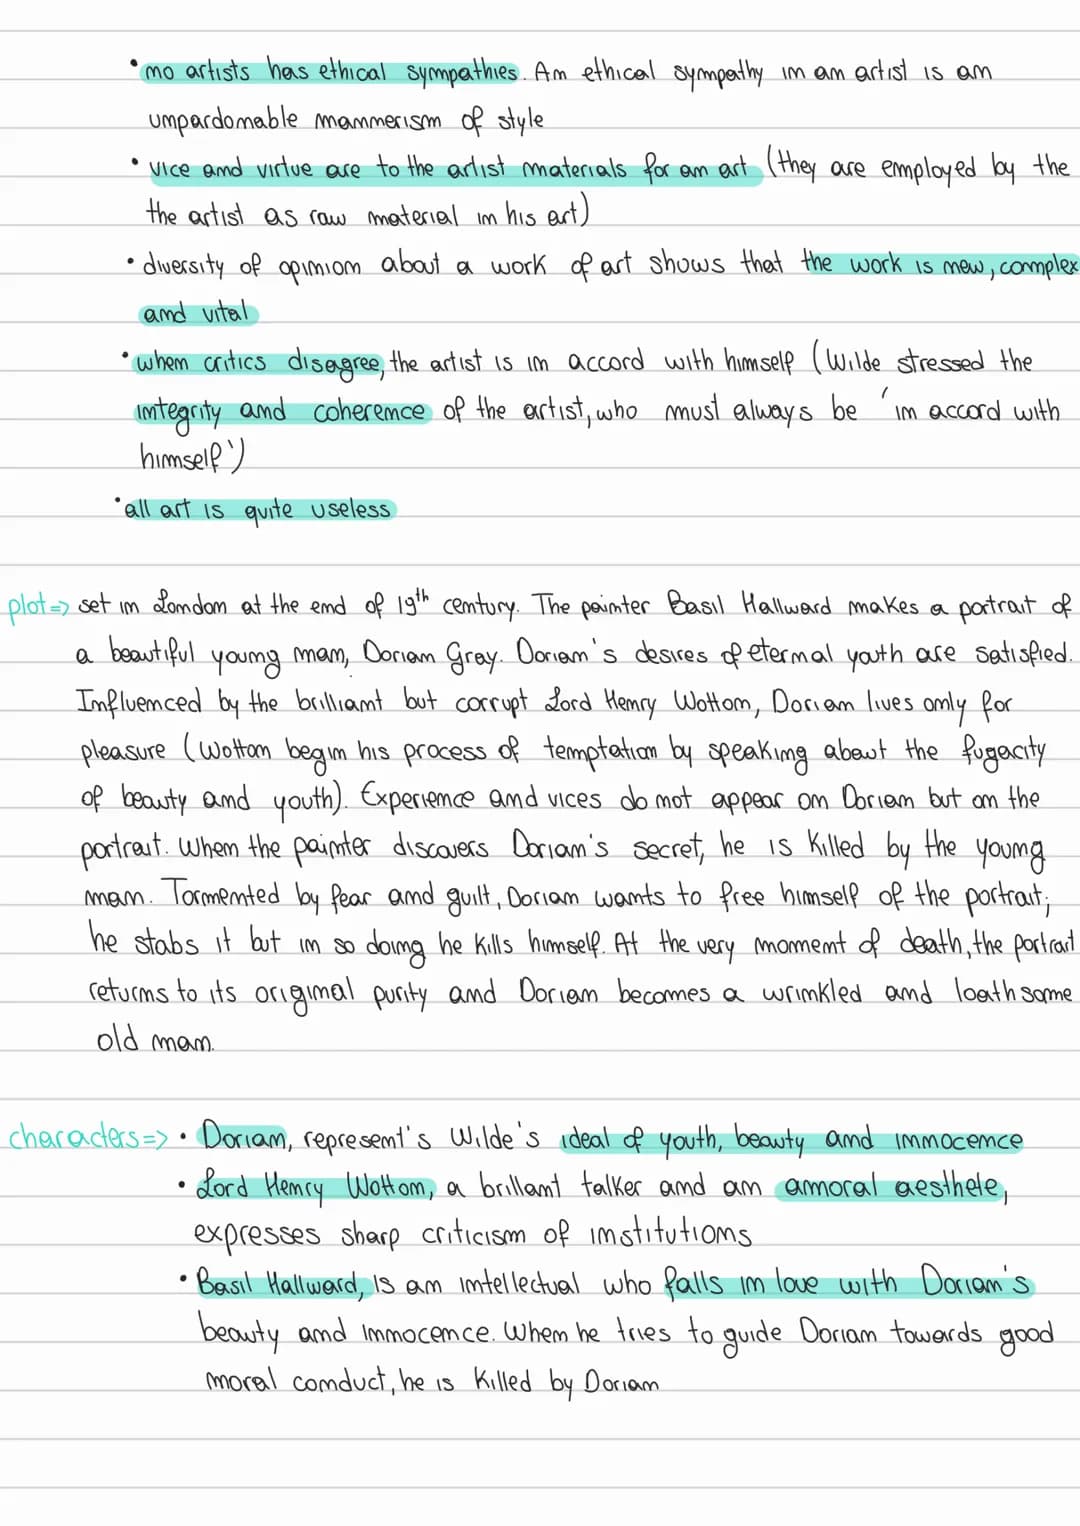 • no artists has ethical sympathies. An ethical sympathy in an artist is an
unpardonable mannerism of style
• vice and virtue are to the artist materials for an art (they are employed by the
the artist as raw material in his art)
• diversity of opinion about a work of art shows that the work is new, complex
and vital
• when critics disagree, the artist is in accord with himself (Wilde stressed the
integrity and coherence of the artist, who must always be 'in accord with
himself')
• all art is quite useless
plot=> set in London at the end of 19th century. The painter Basil Hallward makes a portrait of
a beautiful young man, Dorian Gray. Dorian's desires of eternal youth are satisfied.
Influenced by the brilliant but corrupt Lord Henry Wotton, Dorian lives only for
pleasure (Wotton begin his process of temptation by speaking about the fugacity
of beauty and youth). Experience and vices do not appear on Dorian but on the
portrait. When the painter discovers Dorian's secret, he is killed by the young
man. Tormented by fear and guilt, Dorian wants to free himself of the portrait;
he stabs it but in so doing he kills himself. At the very moment of death, the portrait
returns to its original purity and Dorian becomes a wrinkled and loathsome
old man.
characters=> • Dorian, represent's Wilde's ideal of youth, beauty and innocence
• Lord Henry Wotton, a brillant talker and an amoral aesthete,
expresses sharp criticism of institutions
• Basil Hallward, is an intellectual who falls in love with Dorian's
beauty and innocence. When he tries to guide Dorian towards good
moral conduct, he is killed by Dorian